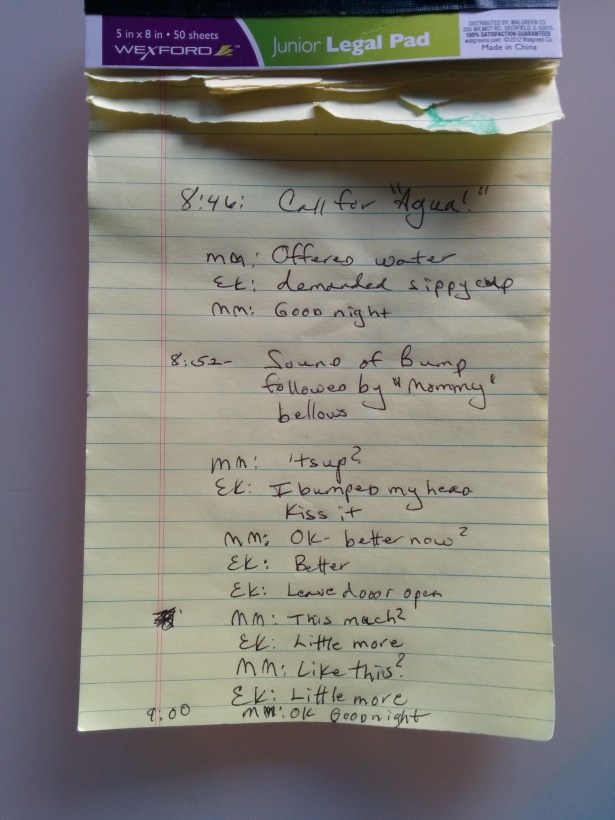 5 in x 8 in • 50 sheets
WEXFORD™
Junior Legal Pad
DISTRIBUTED BY: WALGREEN CO.
200 WILMOT RD., DEERFIELD, IL
100% SATISFACTION GUARANTEED
walgreens.com ©2012 Walgreen Co.
Made in China
8:46: Call for "Agua!"
MM: Offered water
EK: demanded sippy cup
MM: Good night
8:52- Sound of Bump
followed by "Mommy"
bellows
MM: 'tsup?
EK: I bumped my head
Kiss it
MM: OK- better now?
EK: Better
EK: Leave dooor open
MM: This mach?
EK: Little more
MM: Like this?
EK: Little more
9:00 MM: OK Goodnight